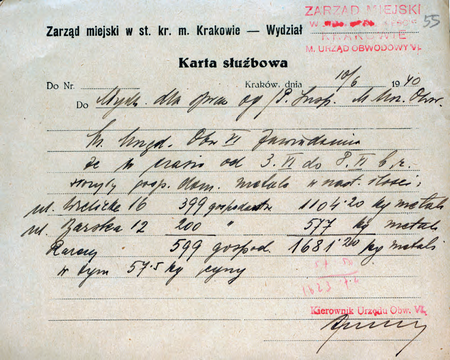 ZARZĄD MIEJSKI
KRAKOWIE
M. URZĄD OBWODOWY VI.
55
Zarząd miejski w st. kr. m. Krakowie — Wydział
Karta służbowa
Do Nr. Kraków, dnia 10/6 1940
Do Wydz. dla spraw og. Insp. M. Urz. Obw.
M. Urząd. Obw. VI zawiadamia
że w czasie od 3.VI do 8.VI b.r.
gosp. dom. metali w nast. ilości:
ul. Wielicka 16 399 gospodarstw 1104.20 kg metali
ul. 12 200 " 577 kg metali
Razem 599 gospod. 1681.20 kg metali
w tym 57.5 kg cyny
57 50
1623 7.2
Kierownik Urzędu Obw. VI.